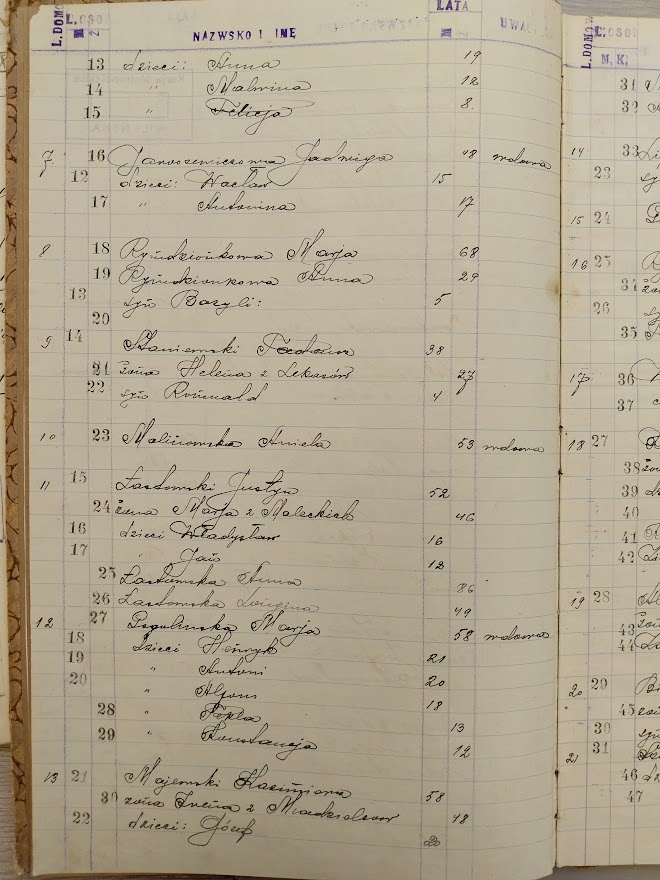 L. DOMÓW L. OSO LATA
M. Ż. NAZWSKO I IMĘ M Ż UWAGI
13 dzieci: Anna 19
14 " Malwina 12
15 " Felicja 8
7 16 Jadwiga 48 wdowa
12 dzieci: Wacław 15
17 " Antonina 17
8 18 Marja 68
19 Anna 29
13 syn Bazyli: 5
20
9 14 Staniewski 38
21 żona Helena z Lekasów 27
22 syn Romuald 4
10 23 Malinowska Aniela 53 wdowa
11 15 Lastowski Justyn 52
24 żona Marja z Maleckich 46
16 dzieci Władysław 16
17 " Jan 12
25 Lastowska Anna 86
26 Lastowska Longina 49
12 27 Marja 58 wdowa
18 dzieci Henryk 21
19 " Antoni 20
20 " Alfons 18
28 " 13
29 " Konstancja 12
13 21 Majewski 58
30 żona Irena z 48
22 dzieci: Józef 20
L. DOMÓW L. OSOB
M. K.
31
32
14 33
23
15 24
16 25
34
26
35
17 36
37
18 27
38
39
40
41
42
19 28
43
44
20 29
45
30
21 31
46
47